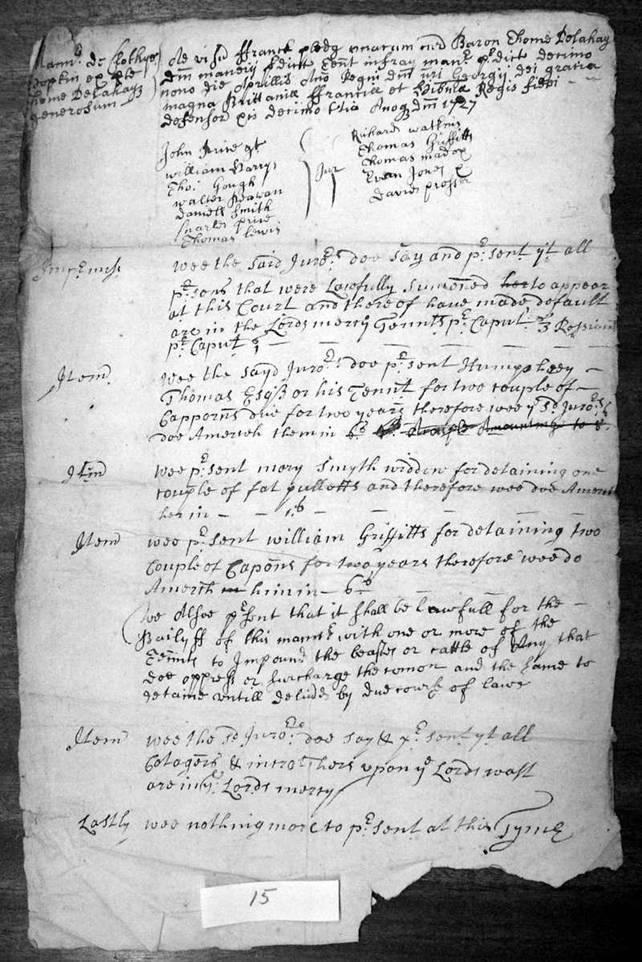 Mann^r de
ex pte
Thome Delahay
generosum
visu ffranc pledg Baron Thome Delahay
infra man^r p^rdict decimo
nono die Aprillis Regni Georgij dei gratia
magna Brittaniæ ffranciæ et Hibniæ Regis fidei
defensor decimo 1727
John Price gt
William Parry
Tho: Gough
Walter
Daniell Smith
Charles Price
Thomas Lewis
Jur
Richard Watkins
Thomas Griffitts
Thomas madox
Evan Jones
David prosser
wee the said Juro^rs doe say and p^rsent y^t all
p^rsons that were Lawfully Sumoned her to appear
at this Court and thereof have made default
are in the Lords mercy Tennts p^r Caput
p^r Caput
Item
wee the sayd Juro^rs doe p^rsent Humphrey
Thomas Esq^r or his Tennt for two couple of
Capporns due for two years therefore wee y^e s^d Juro^rs
doe Amerieh them in 6^s
Itm
wee p^rsent mary Smyth widdow for detaining one
couple of fat pulletts and therefore wee doe
her in
Item
wee p^rsent william Griffitts for detaining two
Couple of Capons for two years therefore wee do
Amerieh him in 6^s
we Alsoe p^rsent that it shall be Lawfull for the
Bailyff of this mann^r with one or more of the
Tennts to Impound the beastes or cattle of Any that
doe oppress or surcharge the comon and the same to
detaine untill by due course of lawe
Item
wee the s^d Juro^rs doe say & p^rsent y^t all
Cotagers & upon y^e Lords wast
are in y^e Lords mercy
Lastly wee nothing more to p^rsent at this Tyme
15